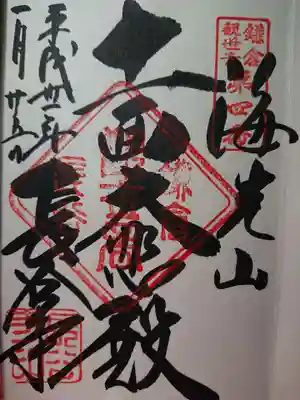 鎌倉第四
観世音
海光山
十一面大悲殿
長谷寺
平成卅一年
一月廿五日